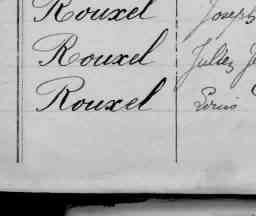 Rouxel Joseph
Rouxel Julien Je
Rouxel Louis